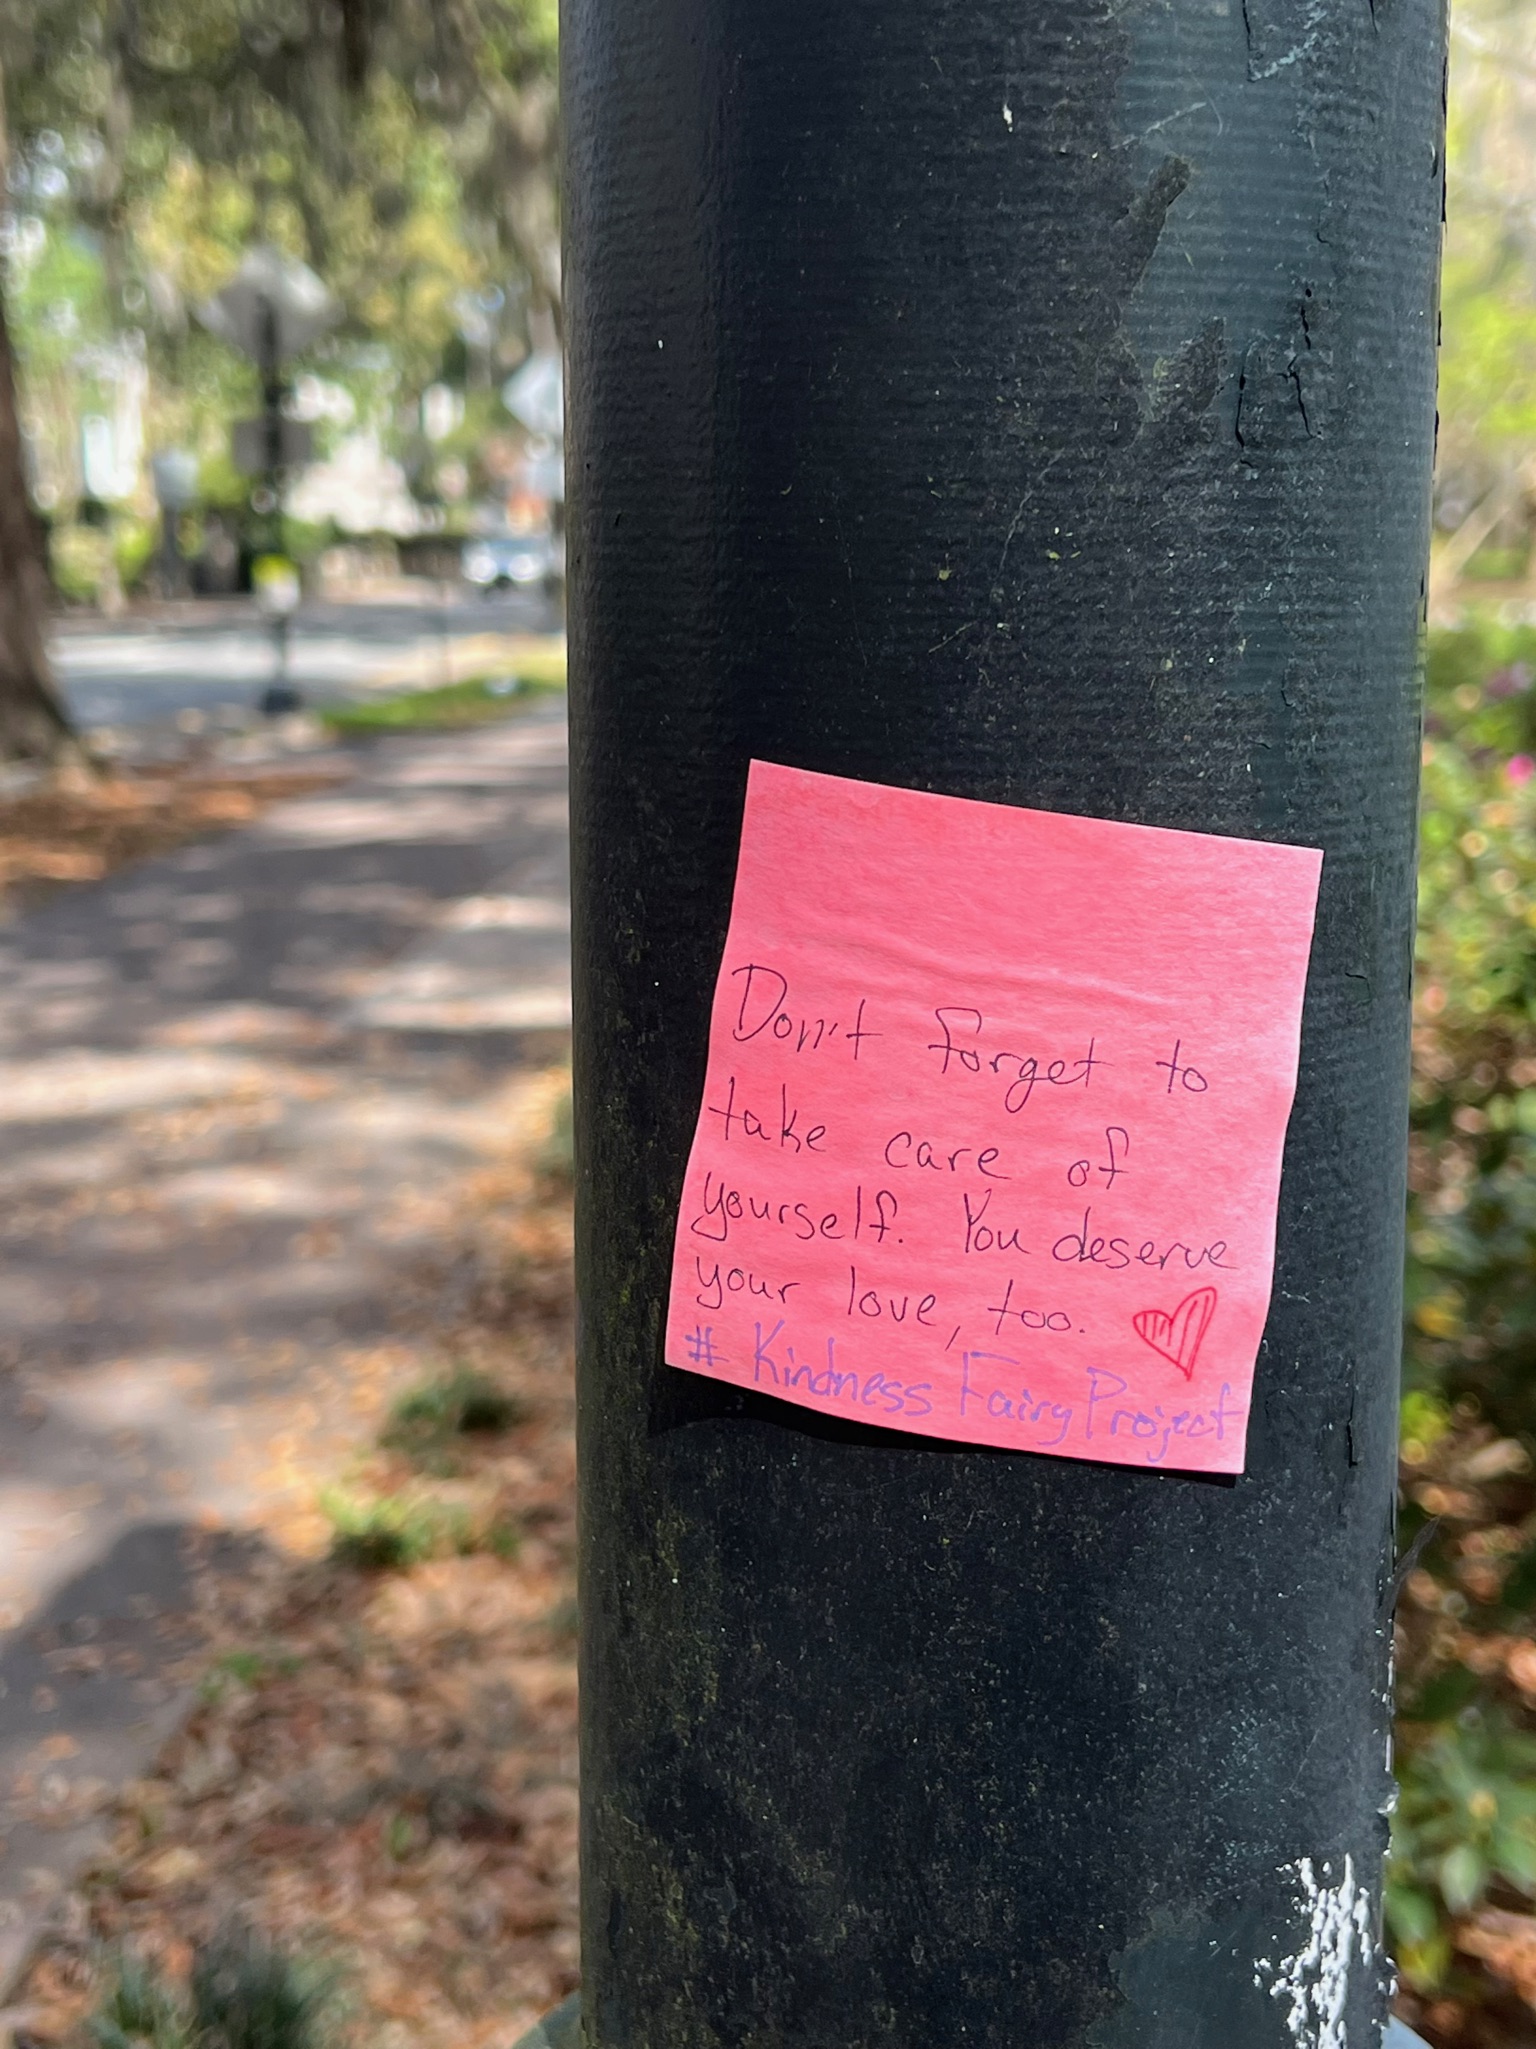 Don't forget to
take care of
yourself. You deserve
your love, too.
# Kindness Fairy Project